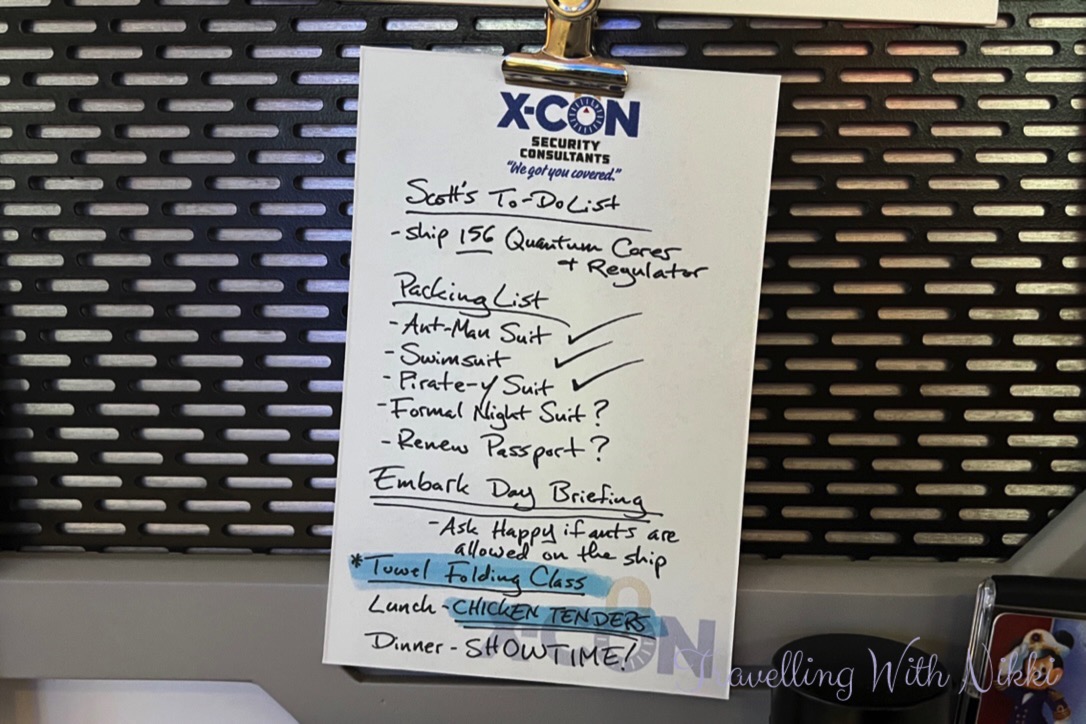 X-CON
SECURITY
CONSULTANTS
"We got you covered."
Scott's To-Do List
- Ship 156 Quantum Cores
+ Regulator
Packing List
- Ant-Man Suit ✓
- Swimsuit ✓
- Pirate-y Suit ✓
- Formal Night Suit?
- Renew Passport?
Embark Day Briefing
- Ask Happy if ants are
allowed on the ship
* Towel Folding Class
Lunch - CHICKEN TENDERS
Dinner - SHOWTIME!
X-CON
Travelling With Nikki